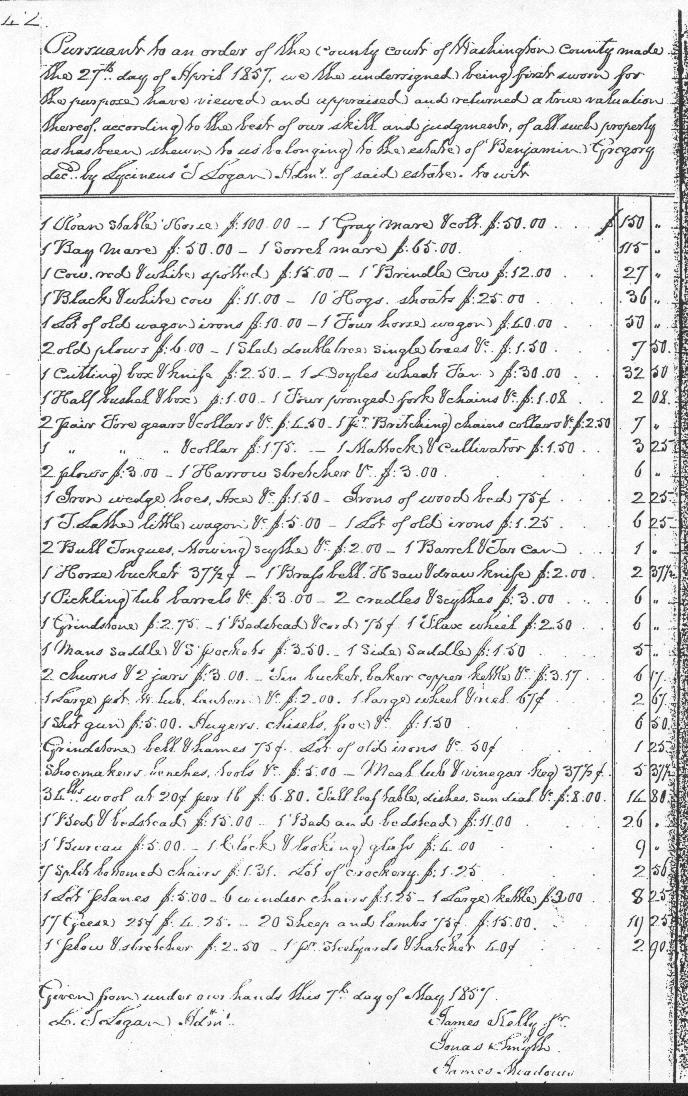 42.
Pursuant to an order of the County Court of Washington County made
the 27th day of April 1857, we the undersigned being first sworn for
the purpose have viewed and appraised and returned a true valuation
thereof, according to the best of our skill and judgment, of all such property
as has been shewn to us belonging to the estate of Benjamin Gregory
decd. by Lycineus T Logan Admr. of said estate. to wit
1 Roan stable Horse $100.00 - 1 Gray mare & colt $50.00 $150 "
1 Bay mare $50.00 - 1 Sorrel mare $65.00 115 "
1 Cow. red & white spotted $15.00 - 1 Brindle Cow $12.00 27 "
1 Black & white cow $11.00 - 10 Hogs. shoats $25.00 36 "
1 Lot of old wagon irons $10.00 - 1 Four horse wagon $40.00 50 "
2 old plows $6.00 - 1 Sled doubletree singletrees &c. $1.50 7 50
1 Cutting box & knife $2.50 - 1 Doyles wheat Fan $30.00 32 50
1 Half bushel & box $1.00 - 1 Four pronged fork & chains &c $1.08 2 08
2 pair Fore gears & collars &c $4.50 - 1 pr Britching chains collars &c $2.50 7 "
1 " " " & collar $1.75 - 1 Mattock & Cultivator $1.50 3 25
2 plows $3.00 - 1 Harrow stretcher &c $3.00 6 "
1 Iron wedge hoes, Axe &c $1.50 - Irons of wood bed 75¢ 2 25
1 T. Lathe little wagon &c $5.00 - 1 Lot of old irons $1.25 6 25
2 Bull Tongues, Mowing scythe &c $2.00 - 1 Barrel & Tar can 1 "
1 Horse bucket 37½¢ - 1 Brass bell. H saw & draw knife $2.00 2 37½
1 Pickling tub barrels &c $3.00 - 2 cradles & scythes $3.00 6 "
1 Grindstone $2.75 - 1 Bedstead & cord 75¢ 1 Flax wheel $2.50 6 "
1 Mans saddle & S. pockets $3.50 - 1 Side Saddle $1.50 5 "
2 churns & 2 jars $3.00 - Tin bucket, baker copper kettle &c $3.17 6 17
1 Large pot. W. tub, lantern &c $2.00. 1 large wheel & reel 67¢ 2 67
1 Shot gun $5.00. Augers. chisels, froe &c $1.50 6 50
Grindstone bell & hames 75¢. Lot of old irons &c. 50¢ 1 25
Shoemakers benches, tools &c $5.00 - Meal tub & vinegar keg 37½¢ 5 37½
34 lbs wool at 20¢ per lb $6.80. Fall leaf table, dishes, sun dial &c $8.00 14 80
1 Bed & bedstead $15.00 - 1 Bed and bedstead $11.00 26 "
1 Bureau $5.00 - 1 Clock & looking glass $4.00 9 "
7 Split bottomed chairs $1.31. Lot of crockery $1.25 2 56
1 Lot Planes $5.00 - 6 windsor chairs $1.25 - 1 Large kettle $2.00 8 25
17 Geese 25¢ $4.25. - 20 Sheep and lambs 75¢ $15.00. 19 25
1 plow & stretcher $2.50 - 1 pr. Steelyards & hatchet 40¢ 2 90
Given from under our hands this 7th day of May 1857
L. T Logan Admr. James Kelly Jr.
Jonas Smyth.
James Meadows